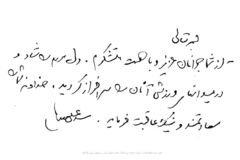 بسمه تعالی
از شما جوانان عزیز و با همت متشکرم. دل مردم را شاد و
در میدانهای ورزشی آنان را سرافراز کردید. خداوند شما را
سعادتمند و نیکو عاقبت فرماید.